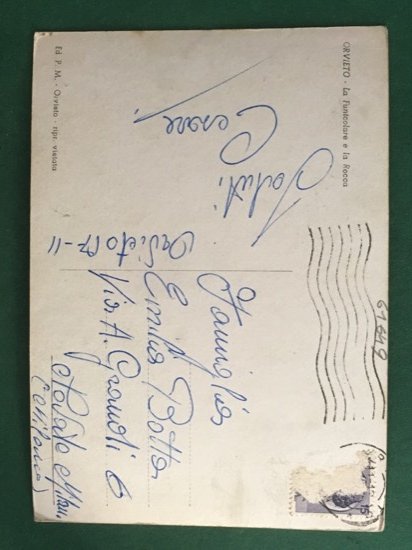 ORVIETO - La Funicolare e la Rocca
Saluti.
Cesare.
Orvieto 17-11
Ed. P. M. - Orvieto - ripr. vietata
61649
15
Famiglia
Emilio Botta
Via A. Grandi 6
Novate Milan.
(Milano)